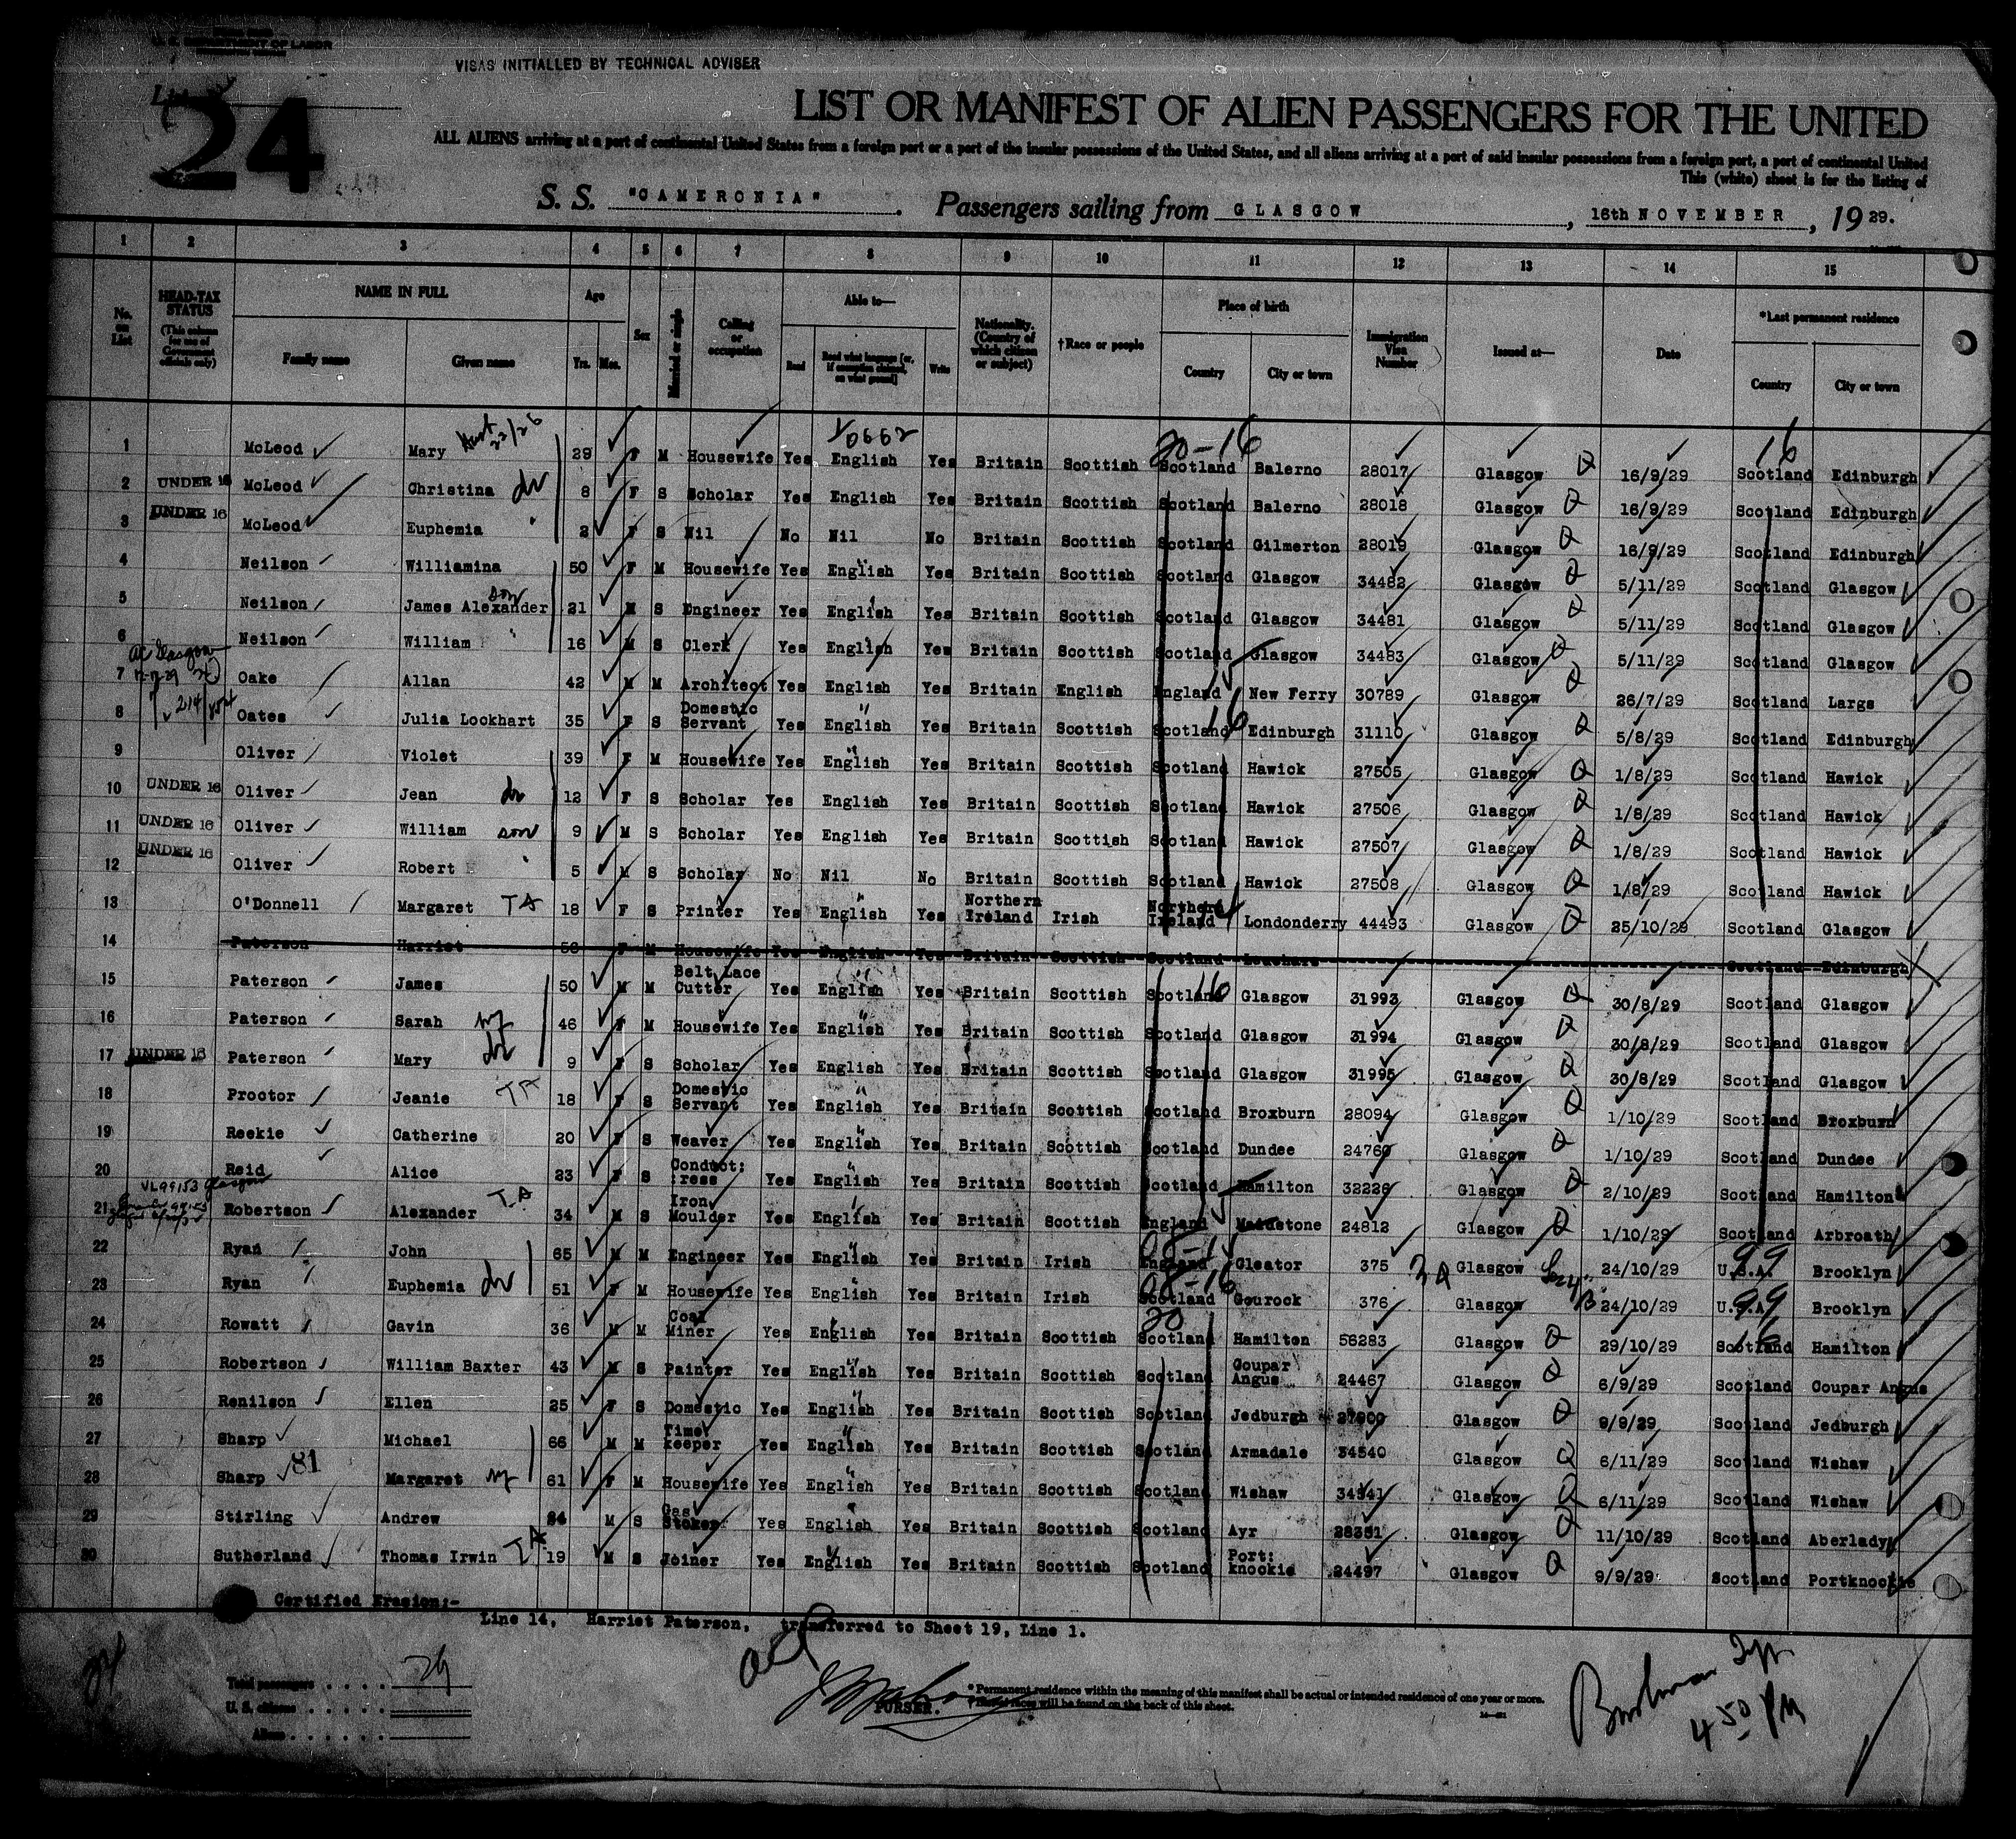 U. S. DEPARTMENT OF LABOR
VISAS INITIALLED BY TECHNICAL ADVISER
List
24
LIST OR MANIFEST OF ALIEN PASSENGERS FOR THE UNITED
ALL ALIENS arriving at a port of continental United States from a foreign port or a port of the insular possessions of the United States, and all aliens arriving at a port of said insular possessions from a foreign port, a port of continental United
This (white) sheet is for the listing of
S. S. "CAMERONIA". Passengers sailing from GLASGOW, 16th NOVEMBER, 19 29.
1 2 3 4 5 6 7 8 9 10 11 12 13 14 15
No. on List HEAD-TAX STATUS (This column for use of Government officials only) NAME IN FULL Family name Given name Age Yrs. Mos. Sex Married or single Calling or occupation Able to— Read Read what language [or, if exemption claimed, on what ground] Write Nationality. (Country of which citizen or subject) †Race or people Place of birth Country City or town Immigration Visa Number Issued at— Date *Last permanent residence Country City or town
1 McLeod Mary 29 F M Housewife Yes English Yes Britain Scottish 20-16 Scotland Balerno 28017 Glasgow Q 16/9/29 16 Scotland Edinburgh
2 UNDER 16 McLeod Christina dr 8 F S Scholar Yes English Yes Britain Scottish Scotland Balerno 28018 Glasgow Q 16/9/29 Scotland Edinburgh
3 UNDER 16 McLeod Euphemia " 2 F S Nil No Nil No Britain Scottish Scotland Gilmerton 28019 Glasgow Q 16/9/29 Scotland Edinburgh
4 Neilson Williamina 50 F M Housewife Yes English Yes Britain Scottish Scotland Glasgow 34482 Glasgow Q 5/11/29 Scotland Glasgow
5 Neilson James Alexander son 21 M S Engineer Yes English Yes Britain Scottish Scotland Glasgow 34481 Glasgow Q 5/11/29 Scotland Glasgow
6 Neilson William " 16 M S Clerk Yes English Yes Britain Scottish Scotland Glasgow 34483 Glasgow Q 5/11/29 Scotland Glasgow
7 Oake Allan 42 M M Architect Yes English Yes Britain English England New Ferry 30789 Glasgow Q 26/7/29 Scotland Largs
8 Oates Julia Lockhart 35 F S Domestic Servant Yes English Yes Britain Scottish Scotland 16 Edinburgh 31110 Glasgow Q 5/8/29 Scotland Edinburgh
9 Oliver Violet 39 F M Housewife Yes English Yes Britain Scottish Scotland Hawick 27505 Glasgow Q 1/8/29 Scotland Hawick
10 UNDER 16 Oliver Jean dr 12 F S Scholar Yes English Yes Britain Scottish Scotland Hawick 27506 Glasgow Q 1/8/29 Scotland Hawick
11 UNDER 16 Oliver William son 9 M S Scholar Yes English Yes Britain Scottish Scotland Hawick 27507 Glasgow Q 1/8/29 Scotland Hawick
12 UNDER 16 Oliver Robert " 5 M S Scholar No Nil No Britain Scottish Scotland Hawick 27508 Glasgow Q 1/8/29 Scotland Hawick
13 O'Donnell Margaret TA 18 F S Printer Yes English Yes Northern Ireland Irish Northern Ireland Londonderry 44493 Glasgow Q 25/10/29 Scotland Glasgow
14 Paterson Harriet F M Housewife Yes English Yes Britain Scottish Scotland Leuchars Scotland Edinburgh
15 Paterson James 50 M M Belt Lace Cutter Yes English Yes Britain Scottish Scotland 16 Glasgow 31993 Glasgow Q 30/8/29 Scotland Glasgow
16 Paterson Sarah wf 46 F M Housewife Yes English Yes Britain Scottish Scotland Glasgow 31994 Glasgow Q 30/8/29 Scotland Glasgow
17 UNDER 16 Paterson Mary dr 9 F S Scholar Yes English Yes Britain Scottish Scotland Glasgow 31995 Glasgow Q 30/8/29 Scotland Glasgow
18 Proctor Jeanie TA 18 F S Domestic Servant Yes English Yes Britain Scottish Scotland Broxburn 28094 Glasgow Q 1/10/29 Scotland Broxburn
19 Reekie Catherine 20 F S Weaver Yes English Yes Britain Scottish Scotland Dundee 24760 Glasgow Q 1/10/29 Scotland Dundee
20 Reid Alice 23 F S Conduct: ress Yes English Yes Britain Scottish Scotland Hamilton 32226 Glasgow Q 2/10/29 Scotland Hamilton
21 Robertson Alexander TA 34 M S Iron Moulder Yes English Yes Britain Scottish England Maidstone 24812 Glasgow Q 1/10/29 Scotland Arbroath
22 Ryan John 65 M M Engineer Yes English Yes Britain Irish England Cleator 375 Glasgow 24/10/29 U.S.A. 99 Brooklyn
23 Ryan Euphemia 51 F M Housewife Yes English Yes Britain Irish 08-16 Scotland Gourock 376 Glasgow 24/10/29 U.S.A. 99 Brooklyn
24 Rowatt Gavin 36 M M Coal Miner Yes English Yes Britain Scottish 20 Scotland Hamilton 56283 Glasgow Q 29/10/29 16 Scotland Hamilton
25 Robertson William Baxter 43 M S Painter Yes English Yes Britain Scottish Scotland Coupar Angus 24467 Glasgow Q 6/9/29 Scotland Coupar Angus
26 Renilson Ellen 25 F S Domestic Yes English Yes Britain Scottish Scotland Jedburgh Glasgow Q 9/9/29 Scotland Jedburgh
27 Sharp Michael 66 M M Time keeper Yes English Yes Britain Scottish Scotland Armadale 34540 Glasgow Q 6/11/29 Scotland Wishaw
28 Sharp 81 Margaret wf 61 F M Housewife Yes English Yes Britain Scottish Scotland Wishaw 34541 Glasgow Q 6/11/29 Scotland Wishaw
29 Stirling Andrew M S Gas Stoker Yes English Yes Britain Scottish Scotland Ayr 28351 Glasgow Q 11/10/29 Scotland Aberlady
30 Sutherland Thomas Irwin TA 19 M S Joiner Yes English Yes Britain Scottish Scotland Port: knockie 24497 Glasgow Q 9/9/29 Scotland Portknockie
Certified Erasion:-
Line 14, Harriet Paterson, transferred to Sheet 19, Line 1.
Total passengers . . . . 29
U. S. citizens . . . . .
Aliens . . . . . .
PURSER.
* Permanent residence within the meaning of this manifest shall be actual or intended residence of one year or more.
† List of races will be found on the back of this sheet.
4 50 PM